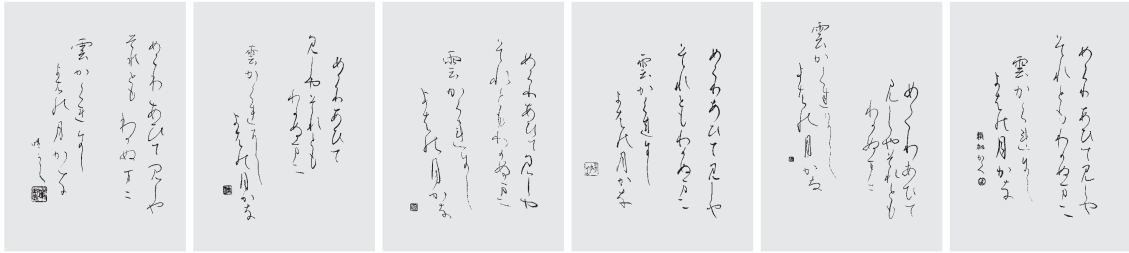 めくりあひて見しや
それともわかぬまに
雲かくれにし
よはの月かな
めくりあひて
見しやそれとも
わかぬまに
雲かくれにし
よはの月かな
めくりあひて見しや
それともわかぬまに
雲かくれにし
よはの月かな
めくりあひて見しや
それともわかぬまに
雲かくれにし
よはの月かな
めくりあひて
見しやそれとも
わかぬまに
雲かくれにし
よはの月かな
めくりあひて見しや
それともわかぬまに
雲かくれにし
よはの月かな